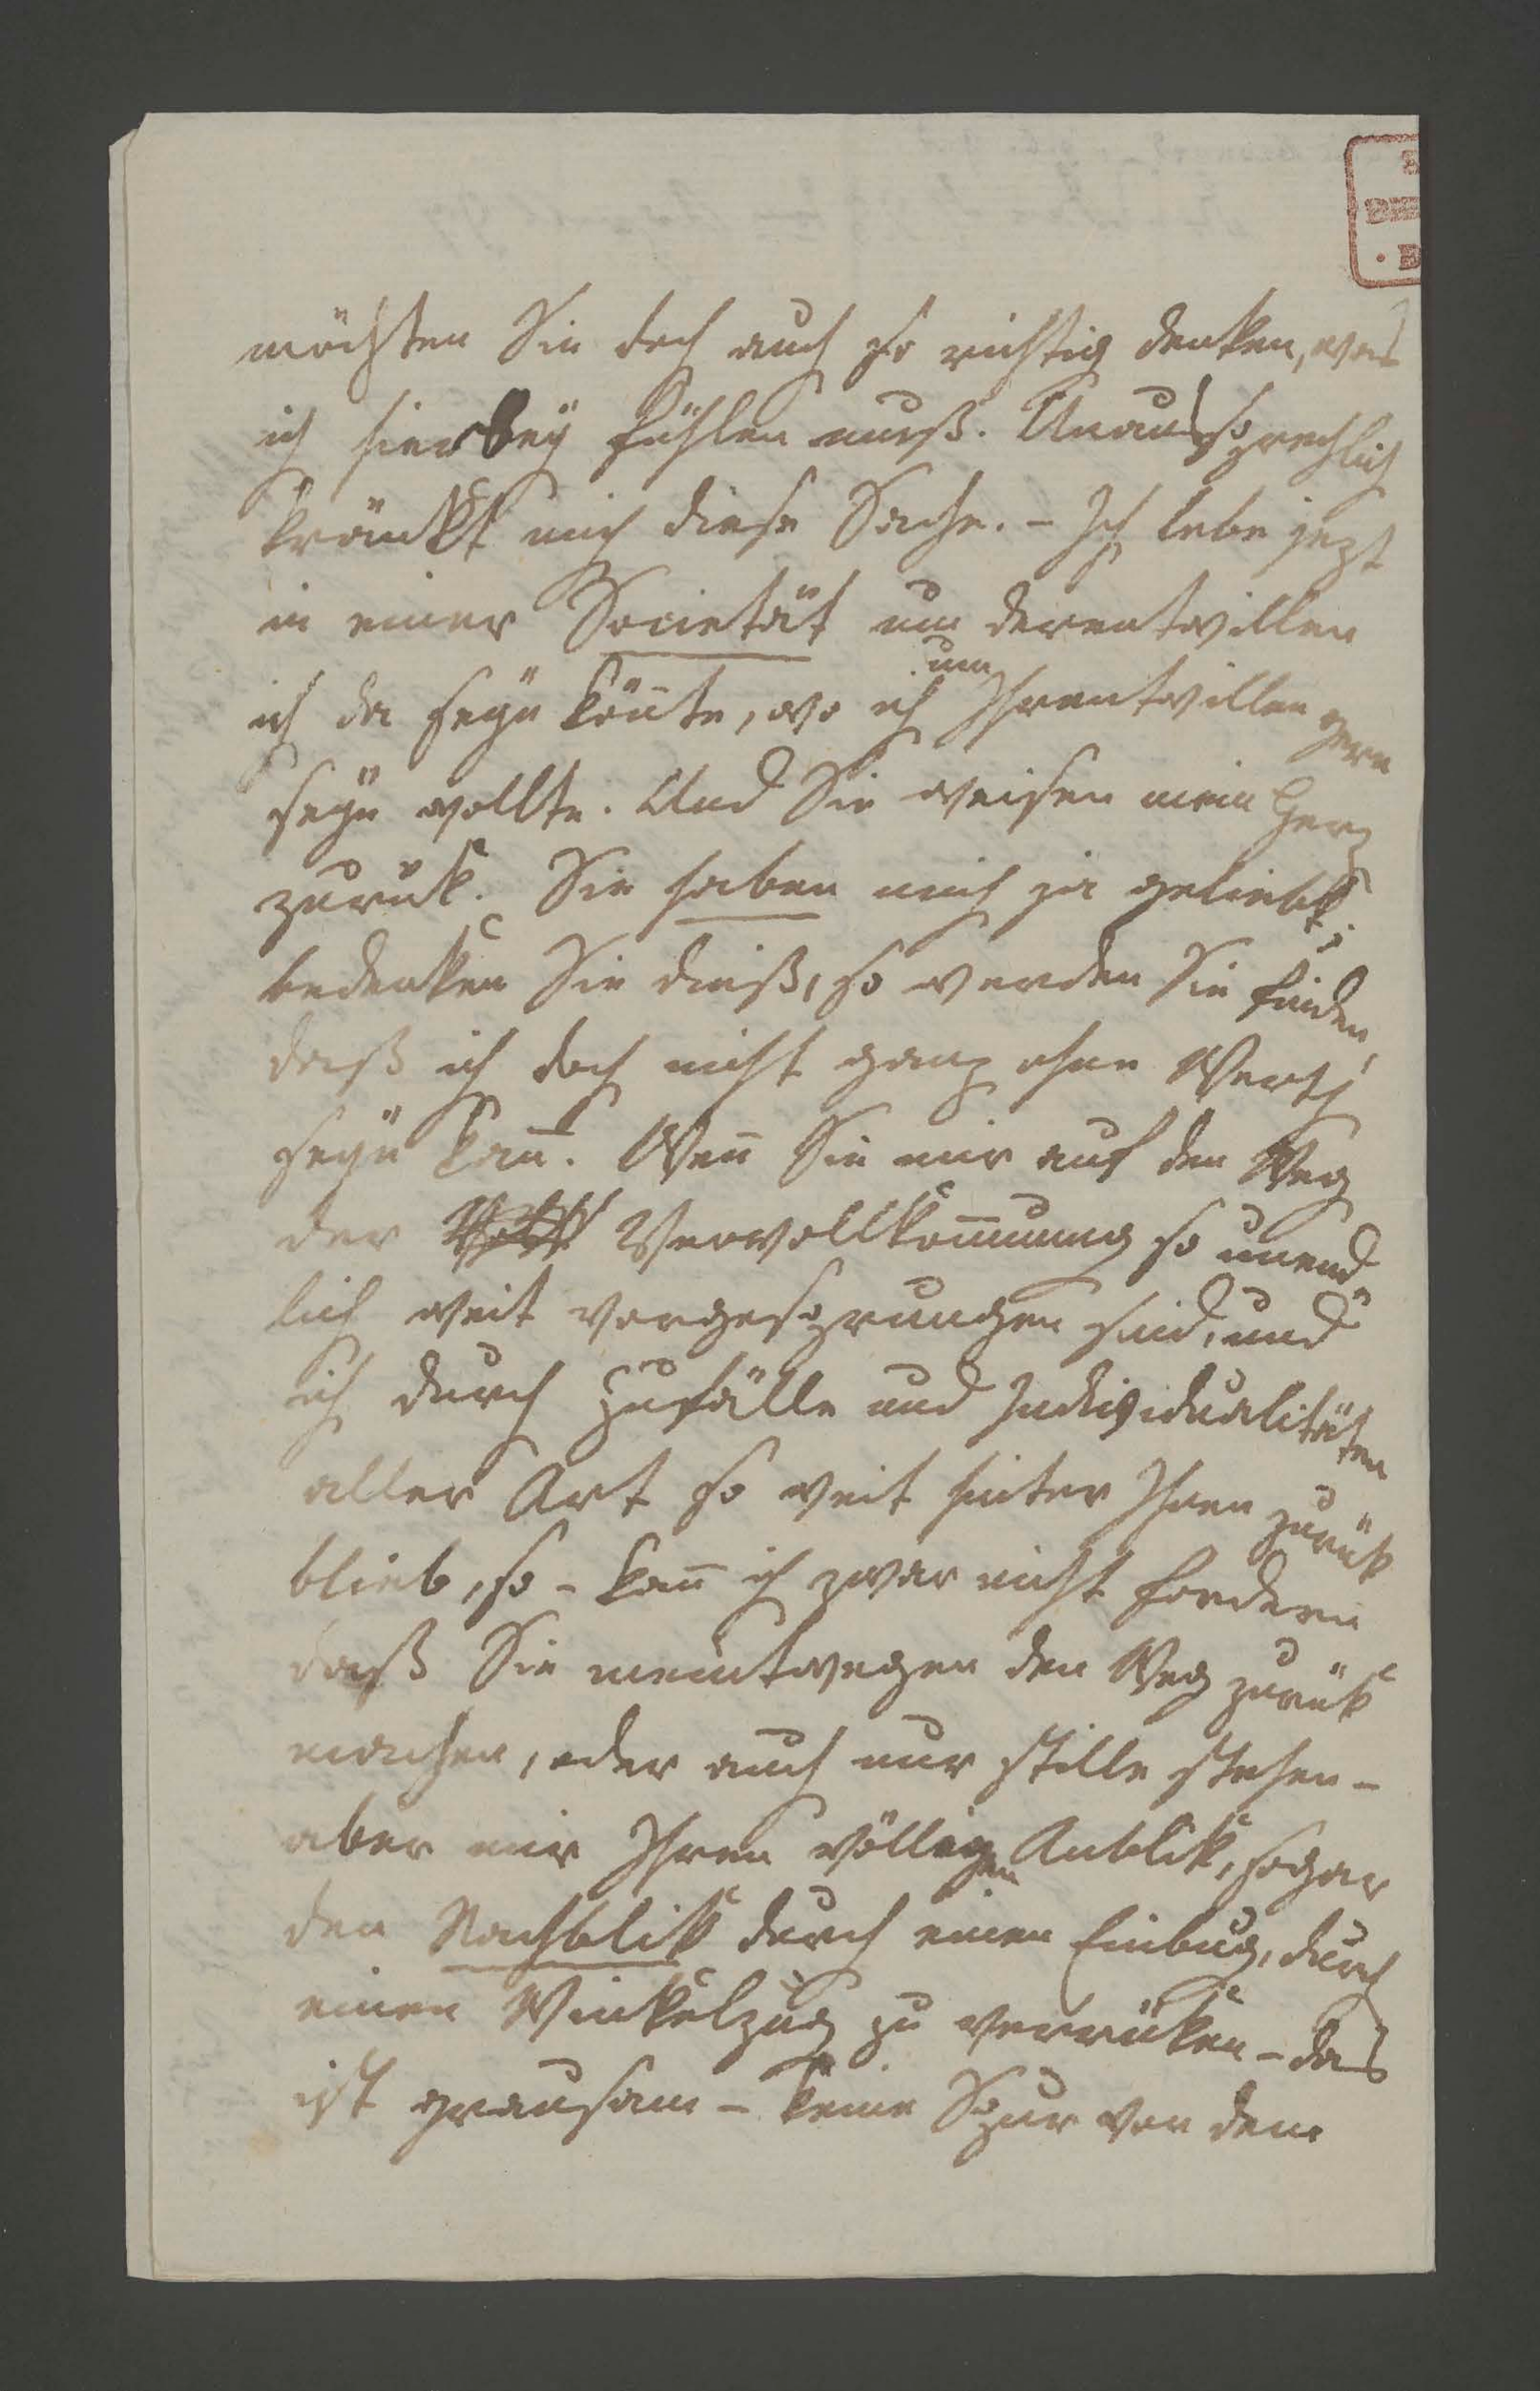 möchten Sie doch auch so richtig denken, was
ich hierbeÿ fühlen muß. Unaussprechlich
kränkt mich diese Sache. – Ich lebe jezt
in einer Societät um derentwillen
ich da seÿn kön̄te, wo ich um Ihrentwillen gern
seÿn wollte. Und Sie weisen mein Herz
zurük. Sie haben mich ja geliebt;
bedenken Sie dieß, so werden Sie finden,
daß ich doch nicht ganz ohne Werth
seÿn kan̄. Wen̄ Sie mir auf den Weg
der Vervollkom̄nung so unend-
lich weit vorgesprungen sind, und
ich durch Zufälle und Individualitäten
aller Art so weit hinter Ihnen zurük
blieb, so – kan̄ ich zwar nicht fordern
daß Sie meintwegen den Weg zurük
machen, oder auch nur stille stehen –
aber mir Ihren völligen Anblik, sogar
den Nachblik durch einen Einbug, durch
einen Winkelzug zu verrüken – das
ist grausam – keine Spur von dem